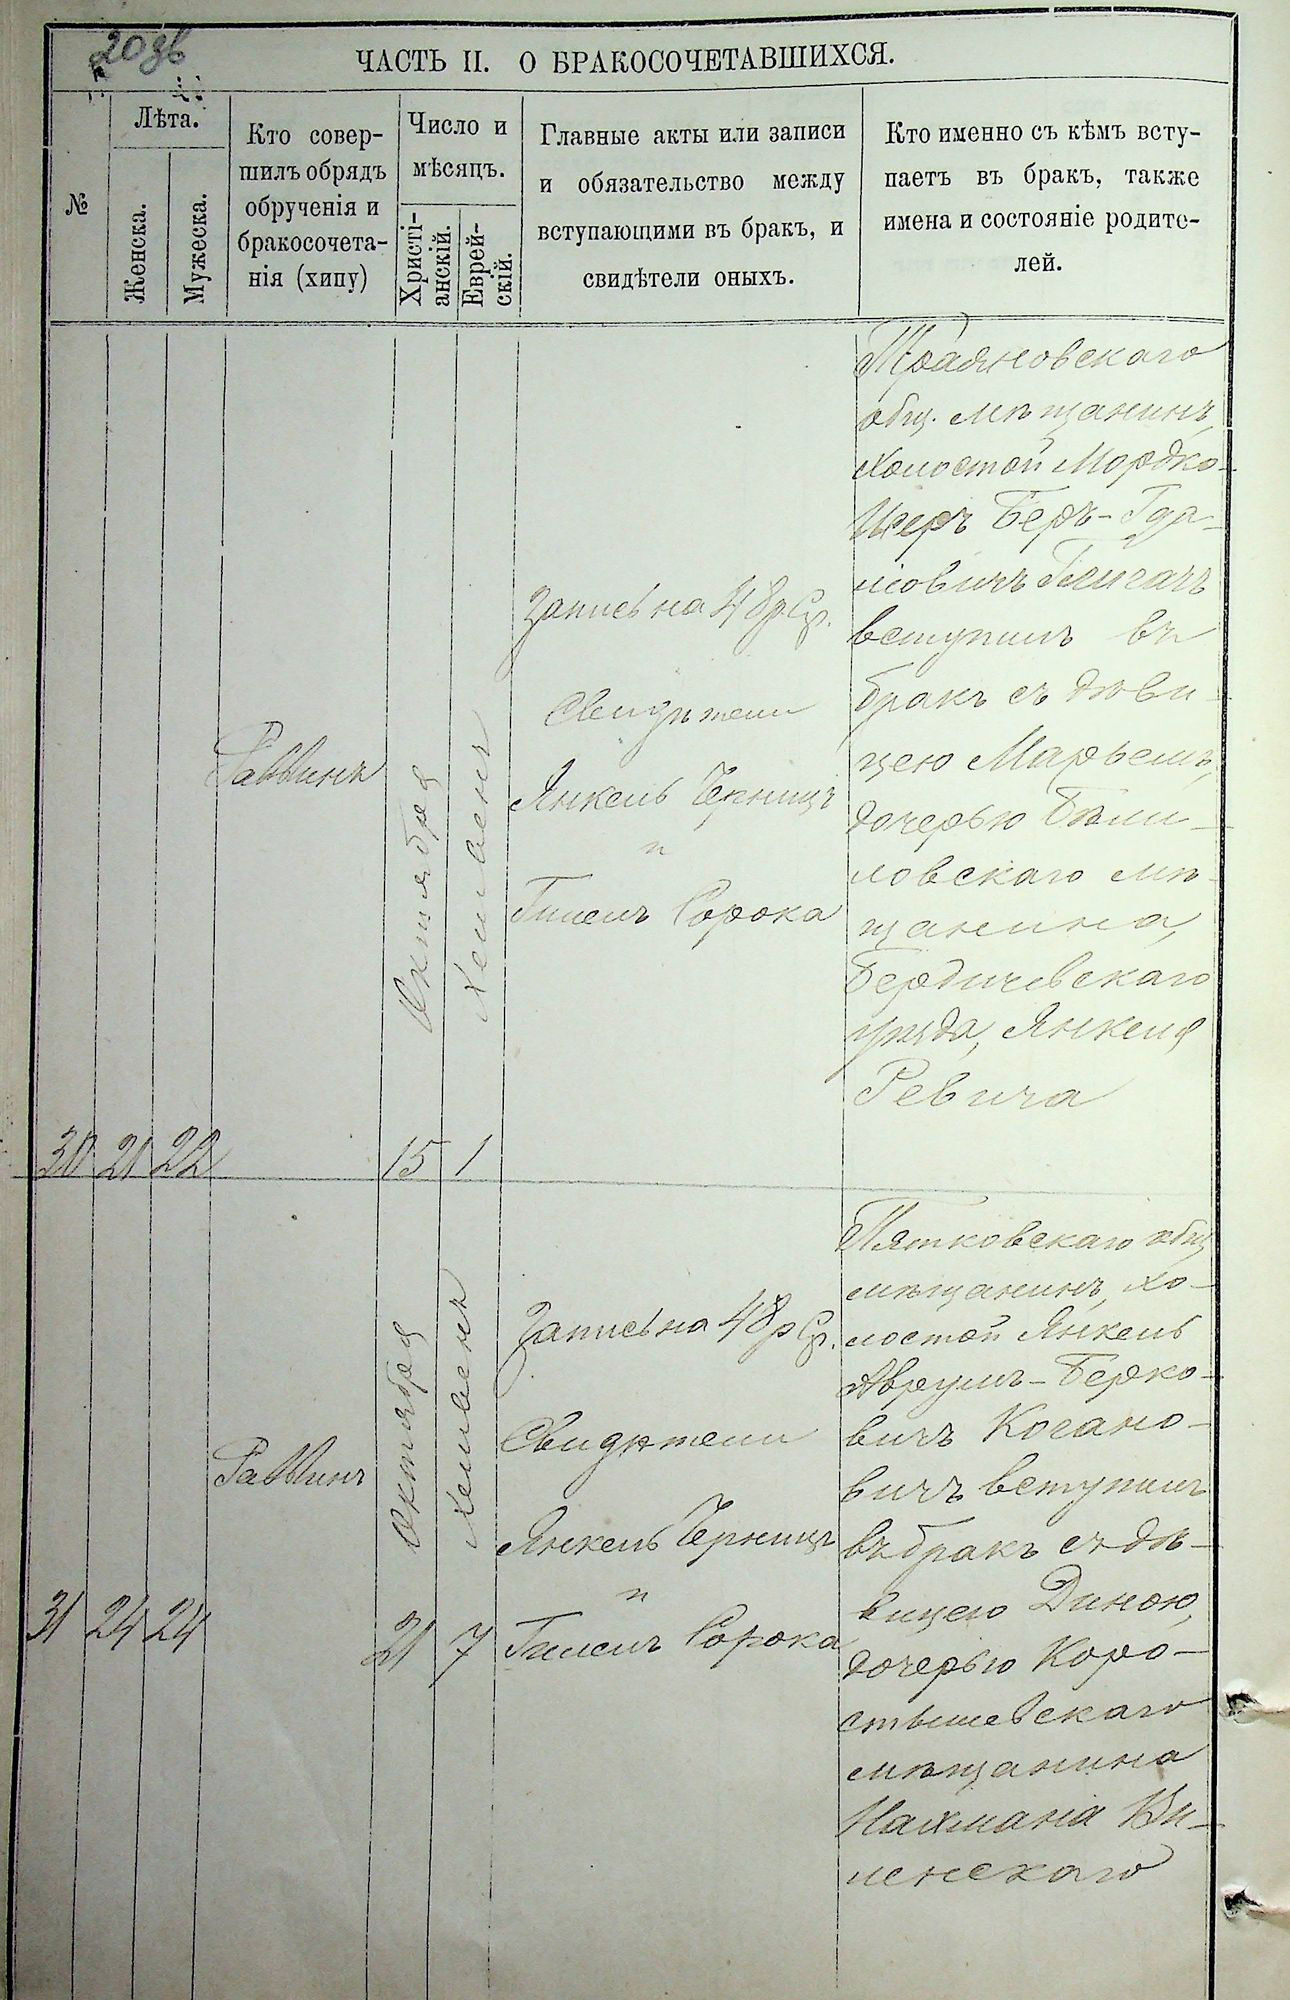 20 зв
ЧАСТЬ II. О БРАКОСОЧЕТАВШИХСЯ.
№
Лѣта.
Женска.
Мужеска.
Кто совер-
шилъ обрядъ
обрученія и
бракосочета-
нія (хипу)
Число и
мѣсяцъ.
Христі-
анскій.
Еврей-
скій.
Главные акты или записи
и обязательство между
вступающими въ бракъ, и
свидѣтели оныхъ.
Кто именно съ кѣмъ всту-
паетъ въ бракъ, также
имена и состояніе родите-
лей.
30
21
22
Раввинъ
Октября
15
Хешвенъ
1
Запись на 48 р. Ср.
Свидѣтели
Янкель Черницъ
и
Сорока
Трояновскаго
общ. мѣщанинъ,
холостой Мордко-
Исеръ Беръ-Гда-
вступилъ въ
бракъ съ дѣви-
цею Марьемъ,
дочерью Бѣли-
ловскаго мѣ-
щанина,
Бердичевскаго
уѣзда, Янкеля
Ревича
31
24
24
Раввинъ
Октября
21
Хешвенъ
7
Запись на 48 р Ср.
Свидѣтели
Янкель Черницъ
и
Сорока
Пятковскаго общ
мѣщанинъ, хо-
лостой Янкель
Аврумъ-Берко-
вичъ Когано-
вичъ вступилъ
въ бракъ съ дѣ-
вицею Диною,
дочерью Коро-
стышевскаго
мѣщанина
Нахмана Ви-
ленскаго